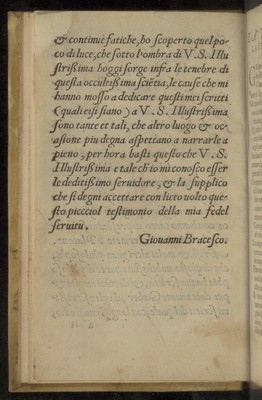 & continue fatiche, ho scoperto quel po-
co di luce, che sotto l'ombra di V. S. Illu
strißima hoggi sorge infra le tenebre di
questa occultißima sciẽtia, le cause che mi
hanno mosso a dedicare questi mei scritti
(quali essi siano) a V. S. Illustrißima
sono tante et tali, che altro luogo & oc-
casione piu degna aspettano a narrarle a
pieno, per hora basti questo che V. S.
Illustrißima e tale ch'io mi conosco esser
le deditißimo seruidore, & la supplico
che si degni accettare con lieto uolto que-
sto picciol testimonio della mia fedel
seruitu.
Giouanni Bracesco.